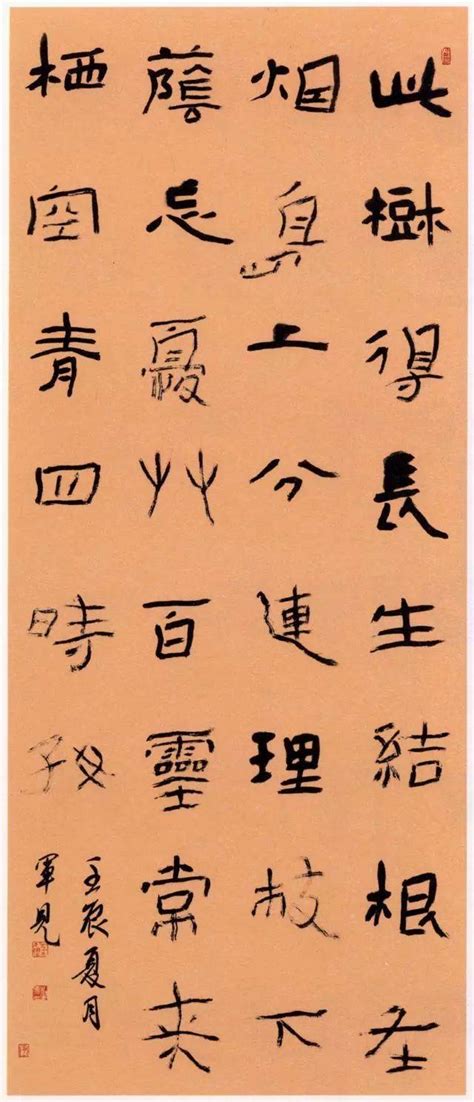 此樹得長生結根在
烟島上分連理枝下
蔭忘憂艸百靈常来
栖空青四時好
壬辰夏月
軍見